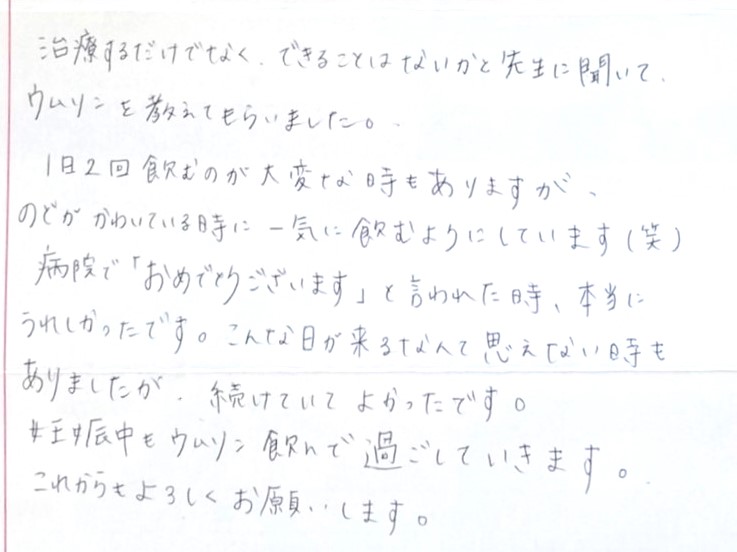 治療するだけでなく、できることはないかと先生に聞いて、
ウムリンを教えてもらいました。
1日2回飲むのが大変な時もありますが、
のどがかわいている時に一気に飲むようにしています(笑)
病院で「おめでとうございます」と言われた時、本当に
うれしかったです。こんな日が来るなんて思えない時も
ありましたが、続けていてよかったです。
妊娠中もウムリン飲んで過ごしていきます。
これからもよろしくお願いします。